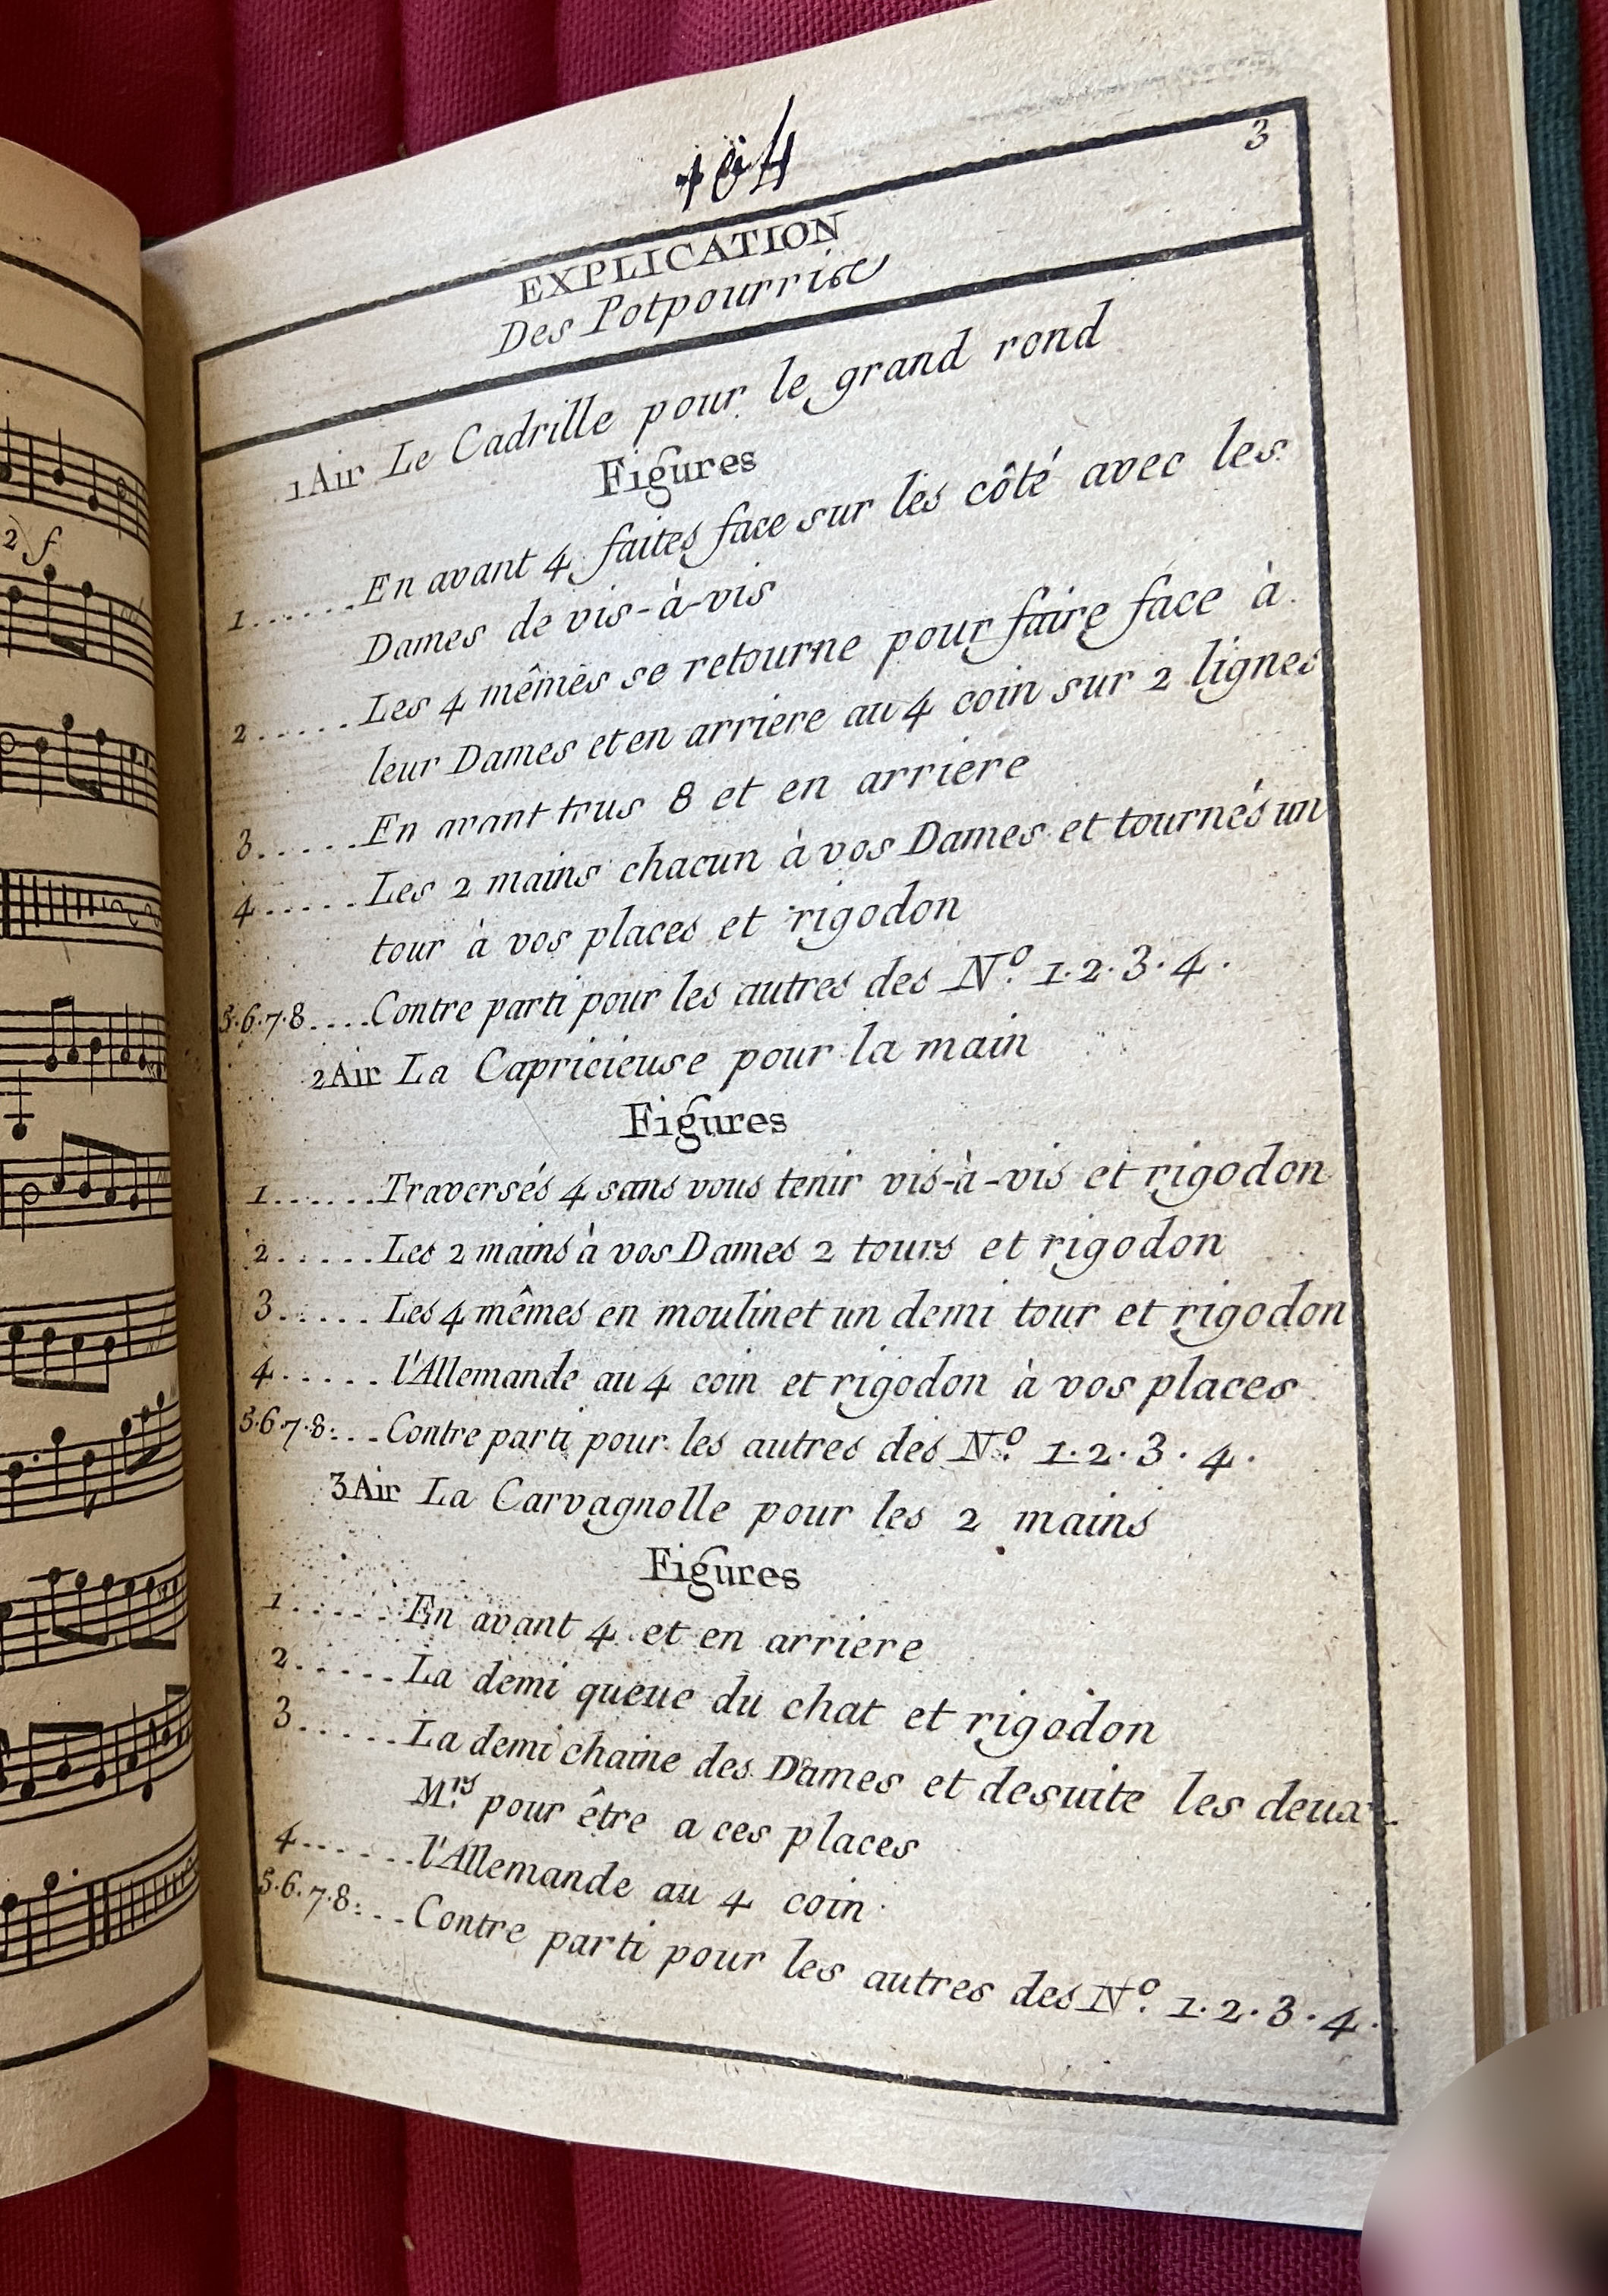 3
EXPLICATION
Des Potpourris
1 Air Le Cadrille pour le grand rond
Figures
1......En avant 4 faites face sur les côté avec les
Dames de vis-à-vis
2......Les 4 mêmes se retourne pour faire face à
leur Dames et en arriere au 4 coin sur 2 lignes
3......En avant tous 8 et en arriere
4......Les 2 mains chacun à vos Dames et tournés un
tour à vos places et rigodon
5.6.7.8....Contre parti pour les autres des N.º 1.2.3.4.
2 Air La Capricieuse pour la main
Figures
1......Traversés 4 sans vous tenir vis-à-vis et rigodon
2......Les 2 mains à vos Dames 2 tours et rigodon
3......Les 4 mêmes en moulinet un demi tour et rigodon
4......l'Allemande au 4 coin et rigodon à vos places
5.6.7.8....Contre parti pour les autres des N.º 1.2.3.4.
3 Air La Carvagnolle pour les 2 mains
Figures
1......En avant 4 et en arriere
2......La demi queue du chat et rigodon
3......La demi chaine des Dames et desuite les deux
M.rs pour être a ces places
4......l'Allemande au 4 coin
5.6.7.8....Contre parti pour les autres des N.º 1.2.3.4.
2 f